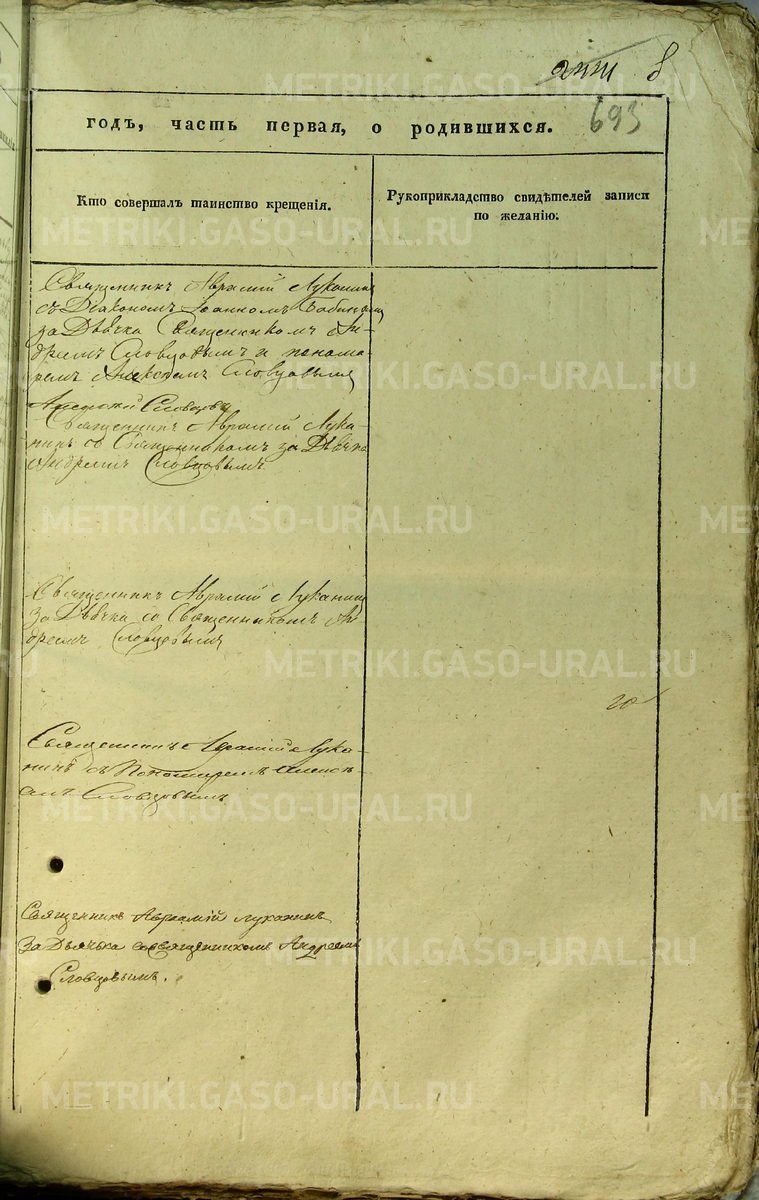 8
693
годъ, часть первая, о родившихся.
Кто совершалъ таинство крещенія.
Рукоприкладство свидѣтелей записи
по желанію:
Священникъ Аврамій Луканинъ
съ Діакономъ Іоанномъ
за Дьячка Священникомъ Ан-
дреемъ Словцовымъ и понома-
ремъ Алексѣемъ Словцовымъ
Словцовъ
Священникъ Аврамій Лука-
нинъ со Священникомъ за Дьячка
Андреемъ Словцовымъ
Священникъ Аврамій Луканинъ
за Дьячка со Священникомъ Ан-
дреемъ Словцовымъ
Священникъ Аврамій Лука-
нинъ съ Пономаремъ Алексѣ-
емъ Словцовымъ
Священникъ Аврамій Луканинъ
За Дьячька сосвященникомъ Андреемъ
Словцовымъ.
METRIKI.GASO-URAL.RU